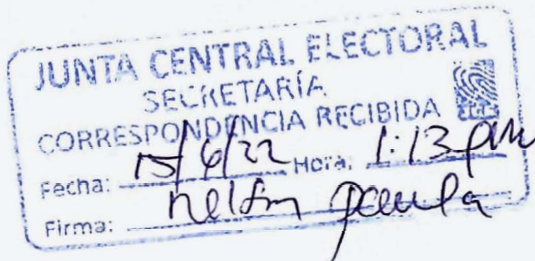 JUNTA CENTRAL ELECTORAL
SECRETARÍA
CORRESPONDENCIA RECIBIDA
Fecha: 15/6/22 Hora: 1:13 pm
Firma: Nelson Paula